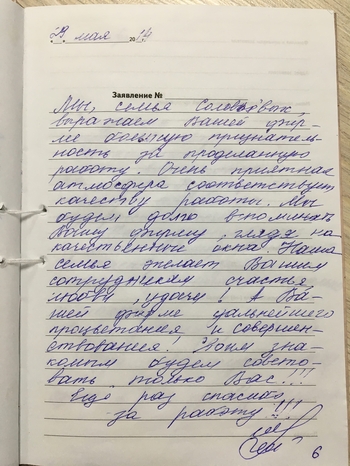 29 мая 2014
Заявление №
Мы, семья Соловьёвых,
выражаем Вашей фир-
ме большую признатель-
ность за проделанную
работу. Очень приятная
атмосфера соответствует
качеству работы. Мы
будем долго вспоминать
Вашу фирму, глядя на
качественные окна. Наша
семья желает Вашим
сотрудникам счастья
любви, удачи! А Ва-
шей фирме дальнейшего
процветания и совершен-
ствования! Всем зна-
комым будем совето-
вать только Вас!!!
Еще раз спасибо
за работу!!!
6